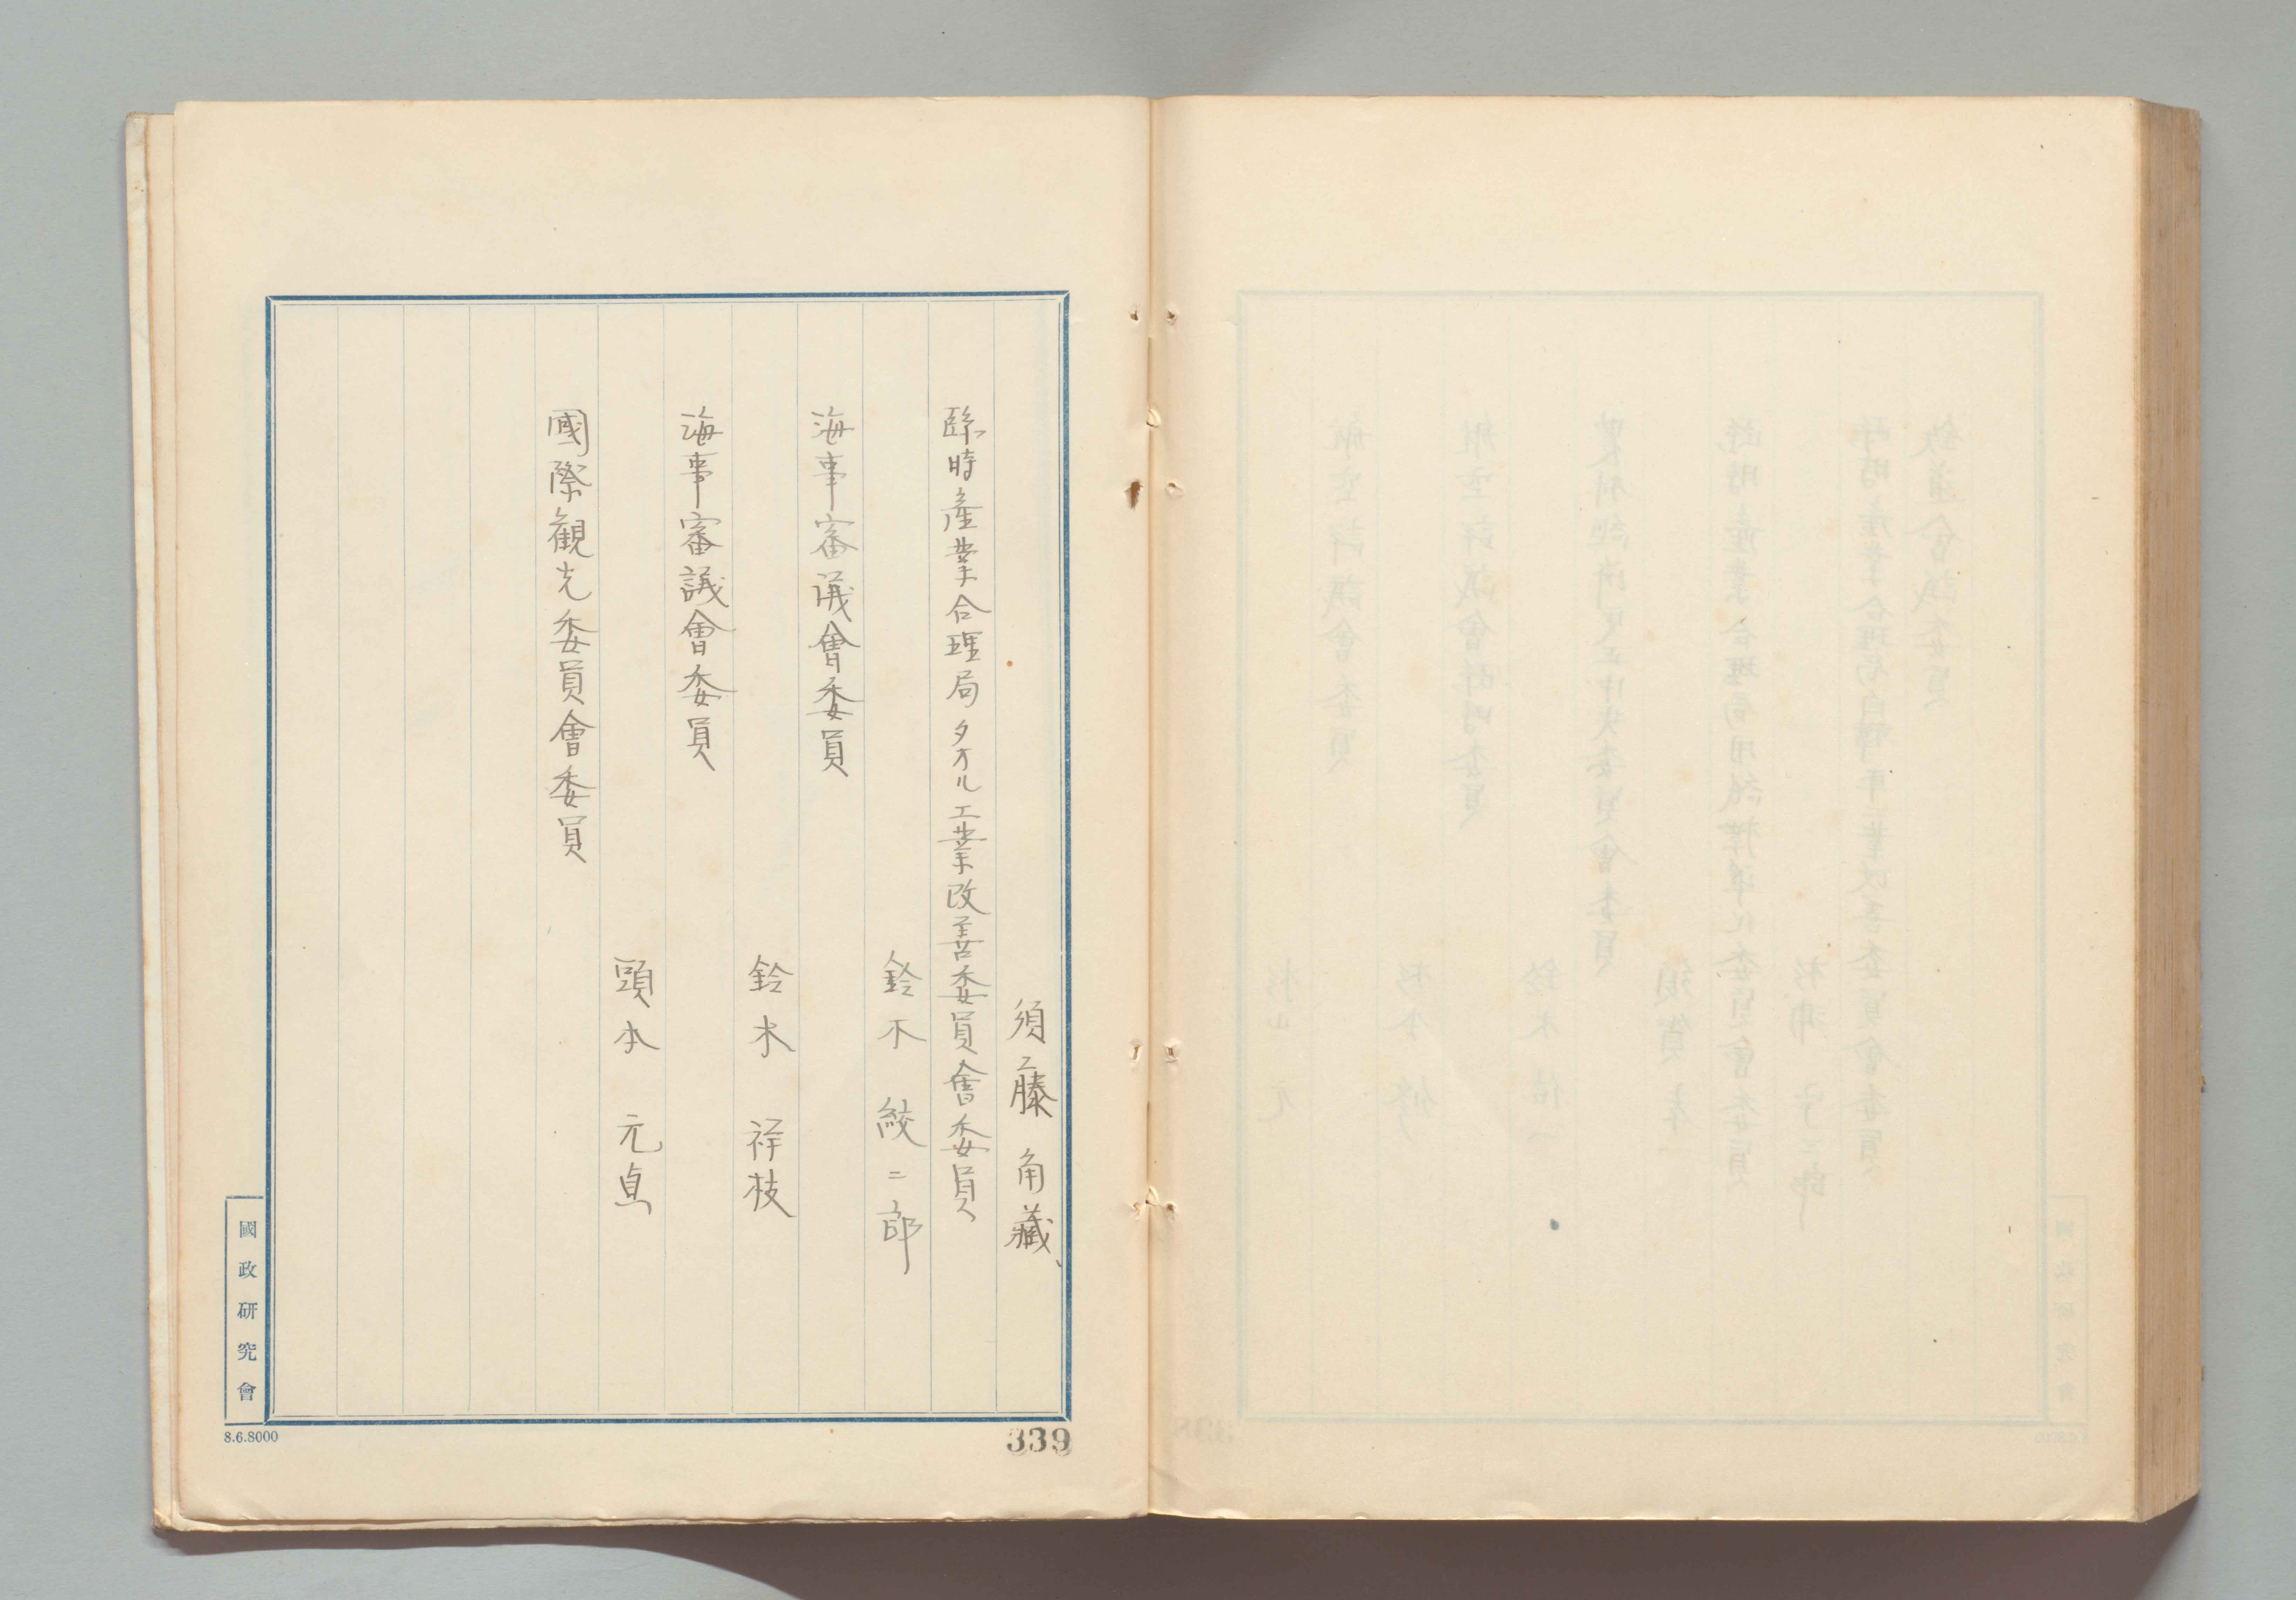 須藤角藏
臨時産業合理局タオル工業改善委員會委員
鈴木 絞二郎
海事審議會委員
鈴木 祥枝
海事審議會委員
頭本 元貞
國際観光委員會委員
國政研究會
8.6.8000
339